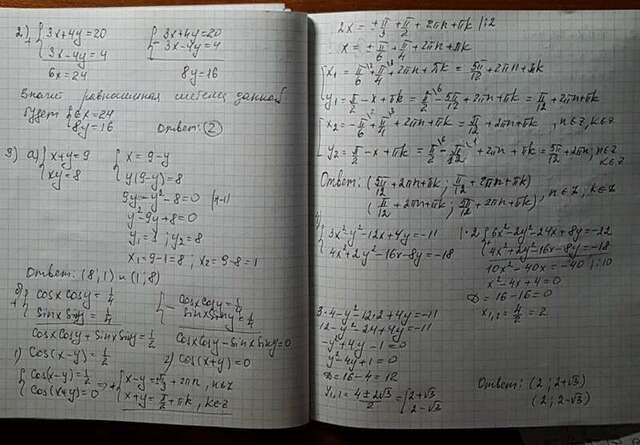 2) { 3x+4y=20   { 3x+4y=20
{ 3x-4y=4   { 3x-4y=4
6x=24   8y=16
Значит равносильная
будет { 6x=24
{ 8y=16   Ответ: 2
3) а) { x+y=9   { x=9-y
{ xy=8   { y(9-y)=8
9y-y²-8=0 |(-1)
y²-9y+8=0
y₁=1 ; y₂=8
x₁=9-1=8 ; x₂=9-8=1
Ответ: (8;1) и (1;8)
б) + { cosx cosy=1/4   - { cosx cosy=1/4
{ sinx siny=1/4   { sinx siny=1/4
cosx cosy+sinx siny=1/2   cosx cosy-sinx siny=0
1) cos(x-y)=1/2   2) cos(x+y)=0
{ cos(x-y)=1/2 => + { x-y=±π/3+2πn, n∈Z
{ cos(x+y)=0   { x+y=π/2+πk, k∈Z
2x=±π/3+π/2+2πn+πk |:2
x=±π/6+π/4+2πn+πk
{ x₁=π/6+π/4+2πn+πk=5π/12+2πn+πk
{ y₁=π/2-x+πk=π/2-5π/12+2πn+πk=π/12+2πn+πk
{ x₂=-π/6+π/4+2πn+πk=π/12+2πn+πk, n∈Z, k∈Z
{ y₂=π/2-x+πk=π/2-π/12+2πn+πk=5π/12+2πn, n∈Z
k∈Z
Ответ: (5π/12+2πn+πk; π/12+2πn+πk)
(π/12+2πn+πk; 5π/12+2πn+πk), n∈Z, k∈Z
{ 3x²-y²-12x+4y=-11 |·2   { 6x²-2y²-24x+8y=-22
{ 4x²+2y²-16x-8y=-18   { 4x²+2y²-16x-8y=-18
10x²-40x=-40 |:10
x²-4x+4=0
D=16-16=0
x₁,₂=4/2=2
3·4-y²-12·2+4y=-11
12-y²-24+4y=-11
-y²+4y-1=0
y²-4y+1=0
D=16-4=12
y₁,₂=(4±2√3)/2=[2+√3
2-√3
Ответ: (2; 2+√3)
(2; 2-√3)